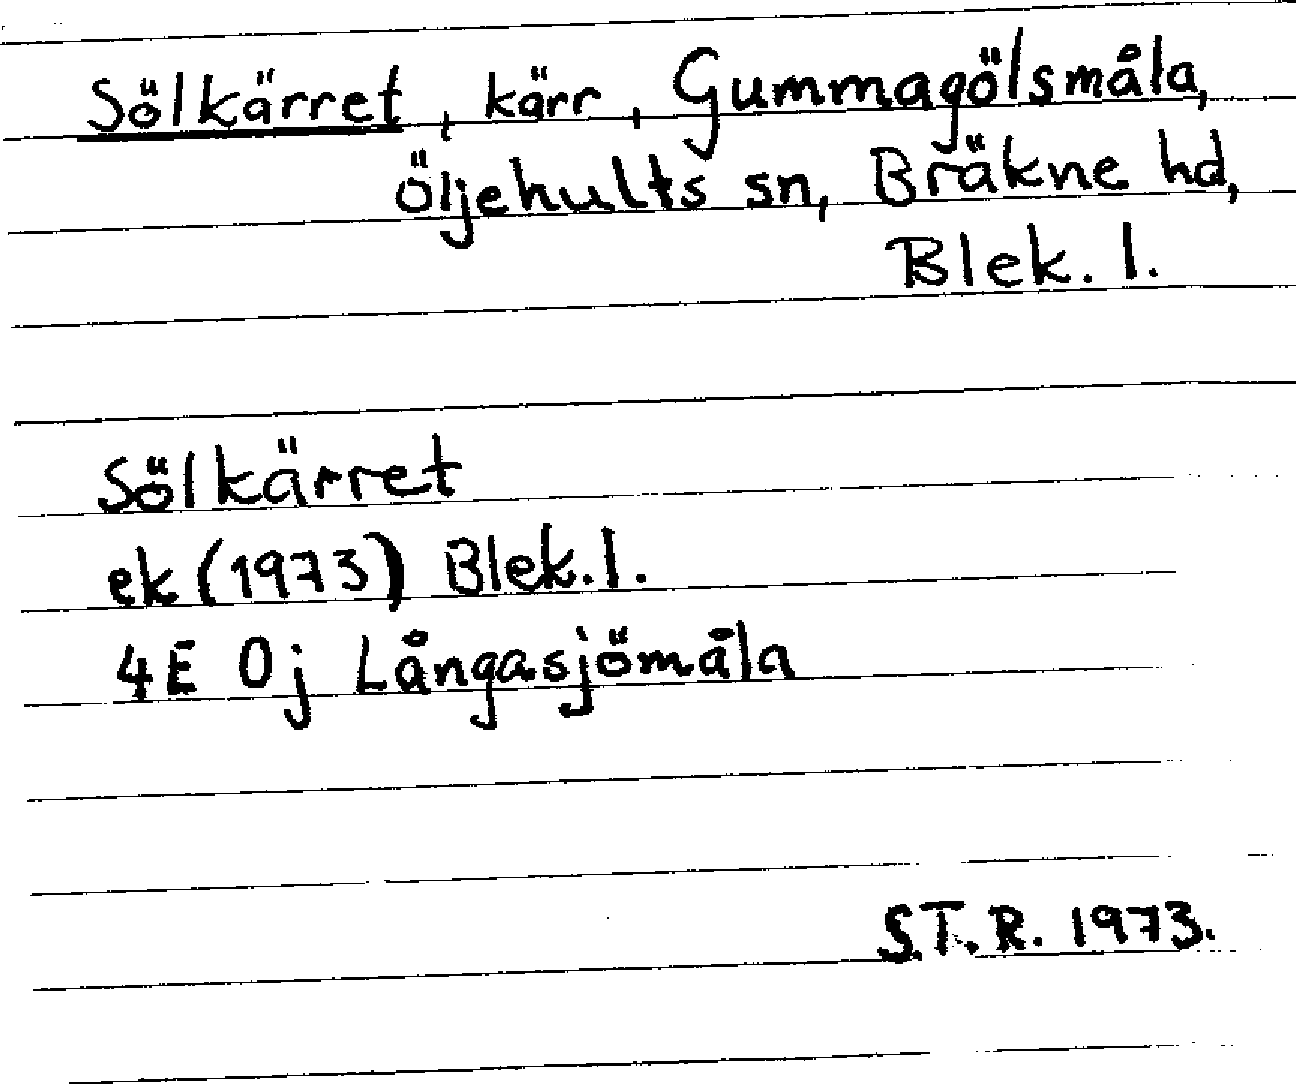 Sölkärret, kärr, Gummagölsmåla,
Öljehults sn, Bräkne hd,
Blek. l.
Sölkärret
ek (1973) Blek. l.
4E 0j Långasjömåla
S.T.R. 1973.